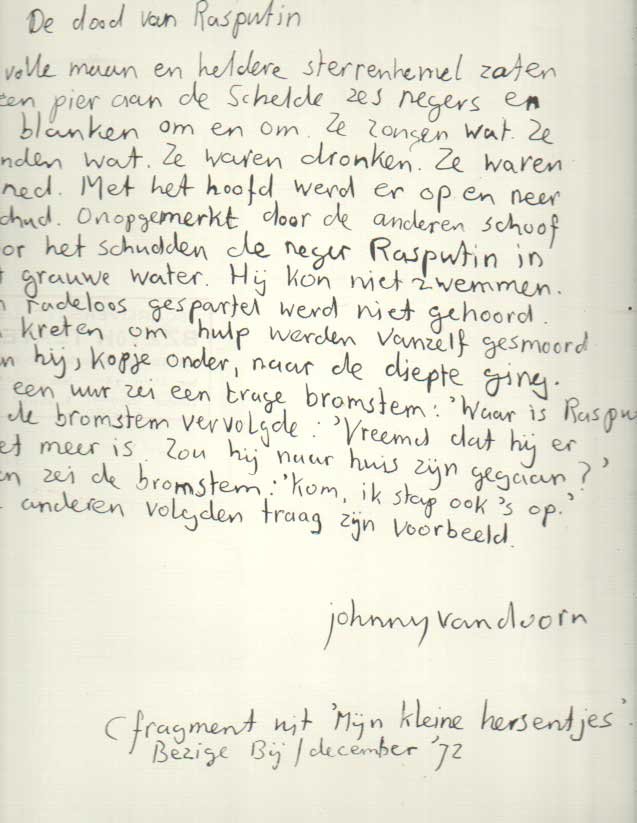 De dood van Rasputin
volle maan en heldere sterrenhemel zaten
een pier aan de Schelde zes negers en
blanken om en om. Ze zongen wat. Ze
nden wat. Ze waren dronken. Ze waren
ned. Met het hoofd werd er op en neer
chud. Onopgemerkt door de anderen schoof
or het schudden de neger Rasputin in
t grauwe water. Hij kon niet zwemmen.
n radeloos gespartel werd niet gehoord.
kreten om hulp werden vanzelf gesmoord
n hij, kopje onder, naar de diepte ging.
een uur zei een trage bromstem: 'Waar is Raspu
de bromstem vervolgde: 'Vreemd dat hij er
et meer is. Zou hij naar huis zijn gegaan?'
n zei de bromstem: 'Kom, ik stap ook 's op.'
anderen volgden traag zijn voorbeeld.
johnny van doorn
(fragment uit 'Mijn kleine hersentjes'.
Bezige Bij / december '72